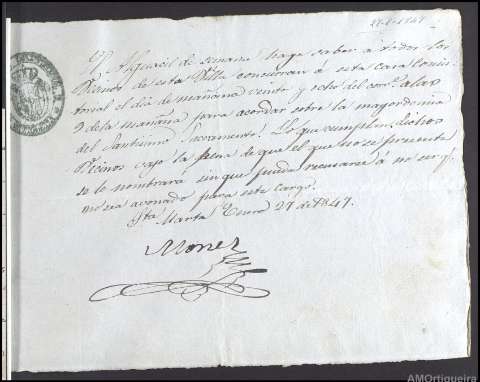 27-1-1847
El Alguacil de semana haga saber á todos los
Vecinos de esta Villa concurran á esta casa Consis-
torial el dia de mañana veinte y ocho del corrte. a las
9 dela mañana para acordar sobre la mayordomia
del Santisimo Sacramento. Lo que cumplan dichos
Vecinos vajo la pena de que el que no se presente
se le nombrará sin que pueda reusarse á no ser q.
no sea avonado para este cargo.
Sta. Marta Enero 27 de 1847.
AMOrtigueira